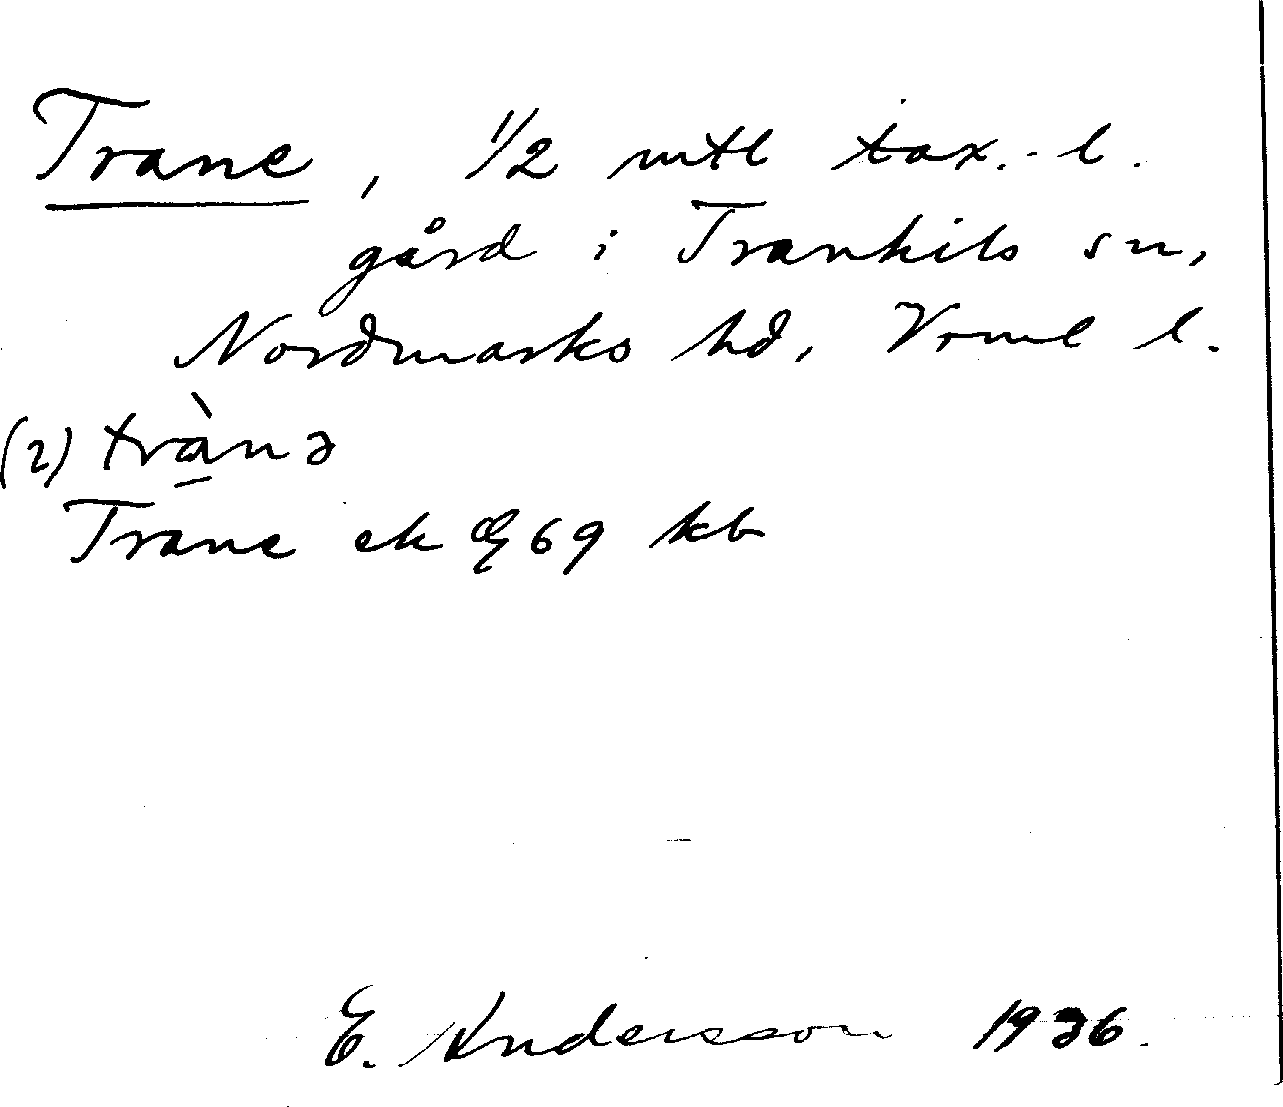 Trane, 1/2 mtl tax.-l.
gård i Trankils sn,
Nordmarks hd, Vrml l.
(2) trànə
Trane ek 69 kb
E. Andersson 1936.